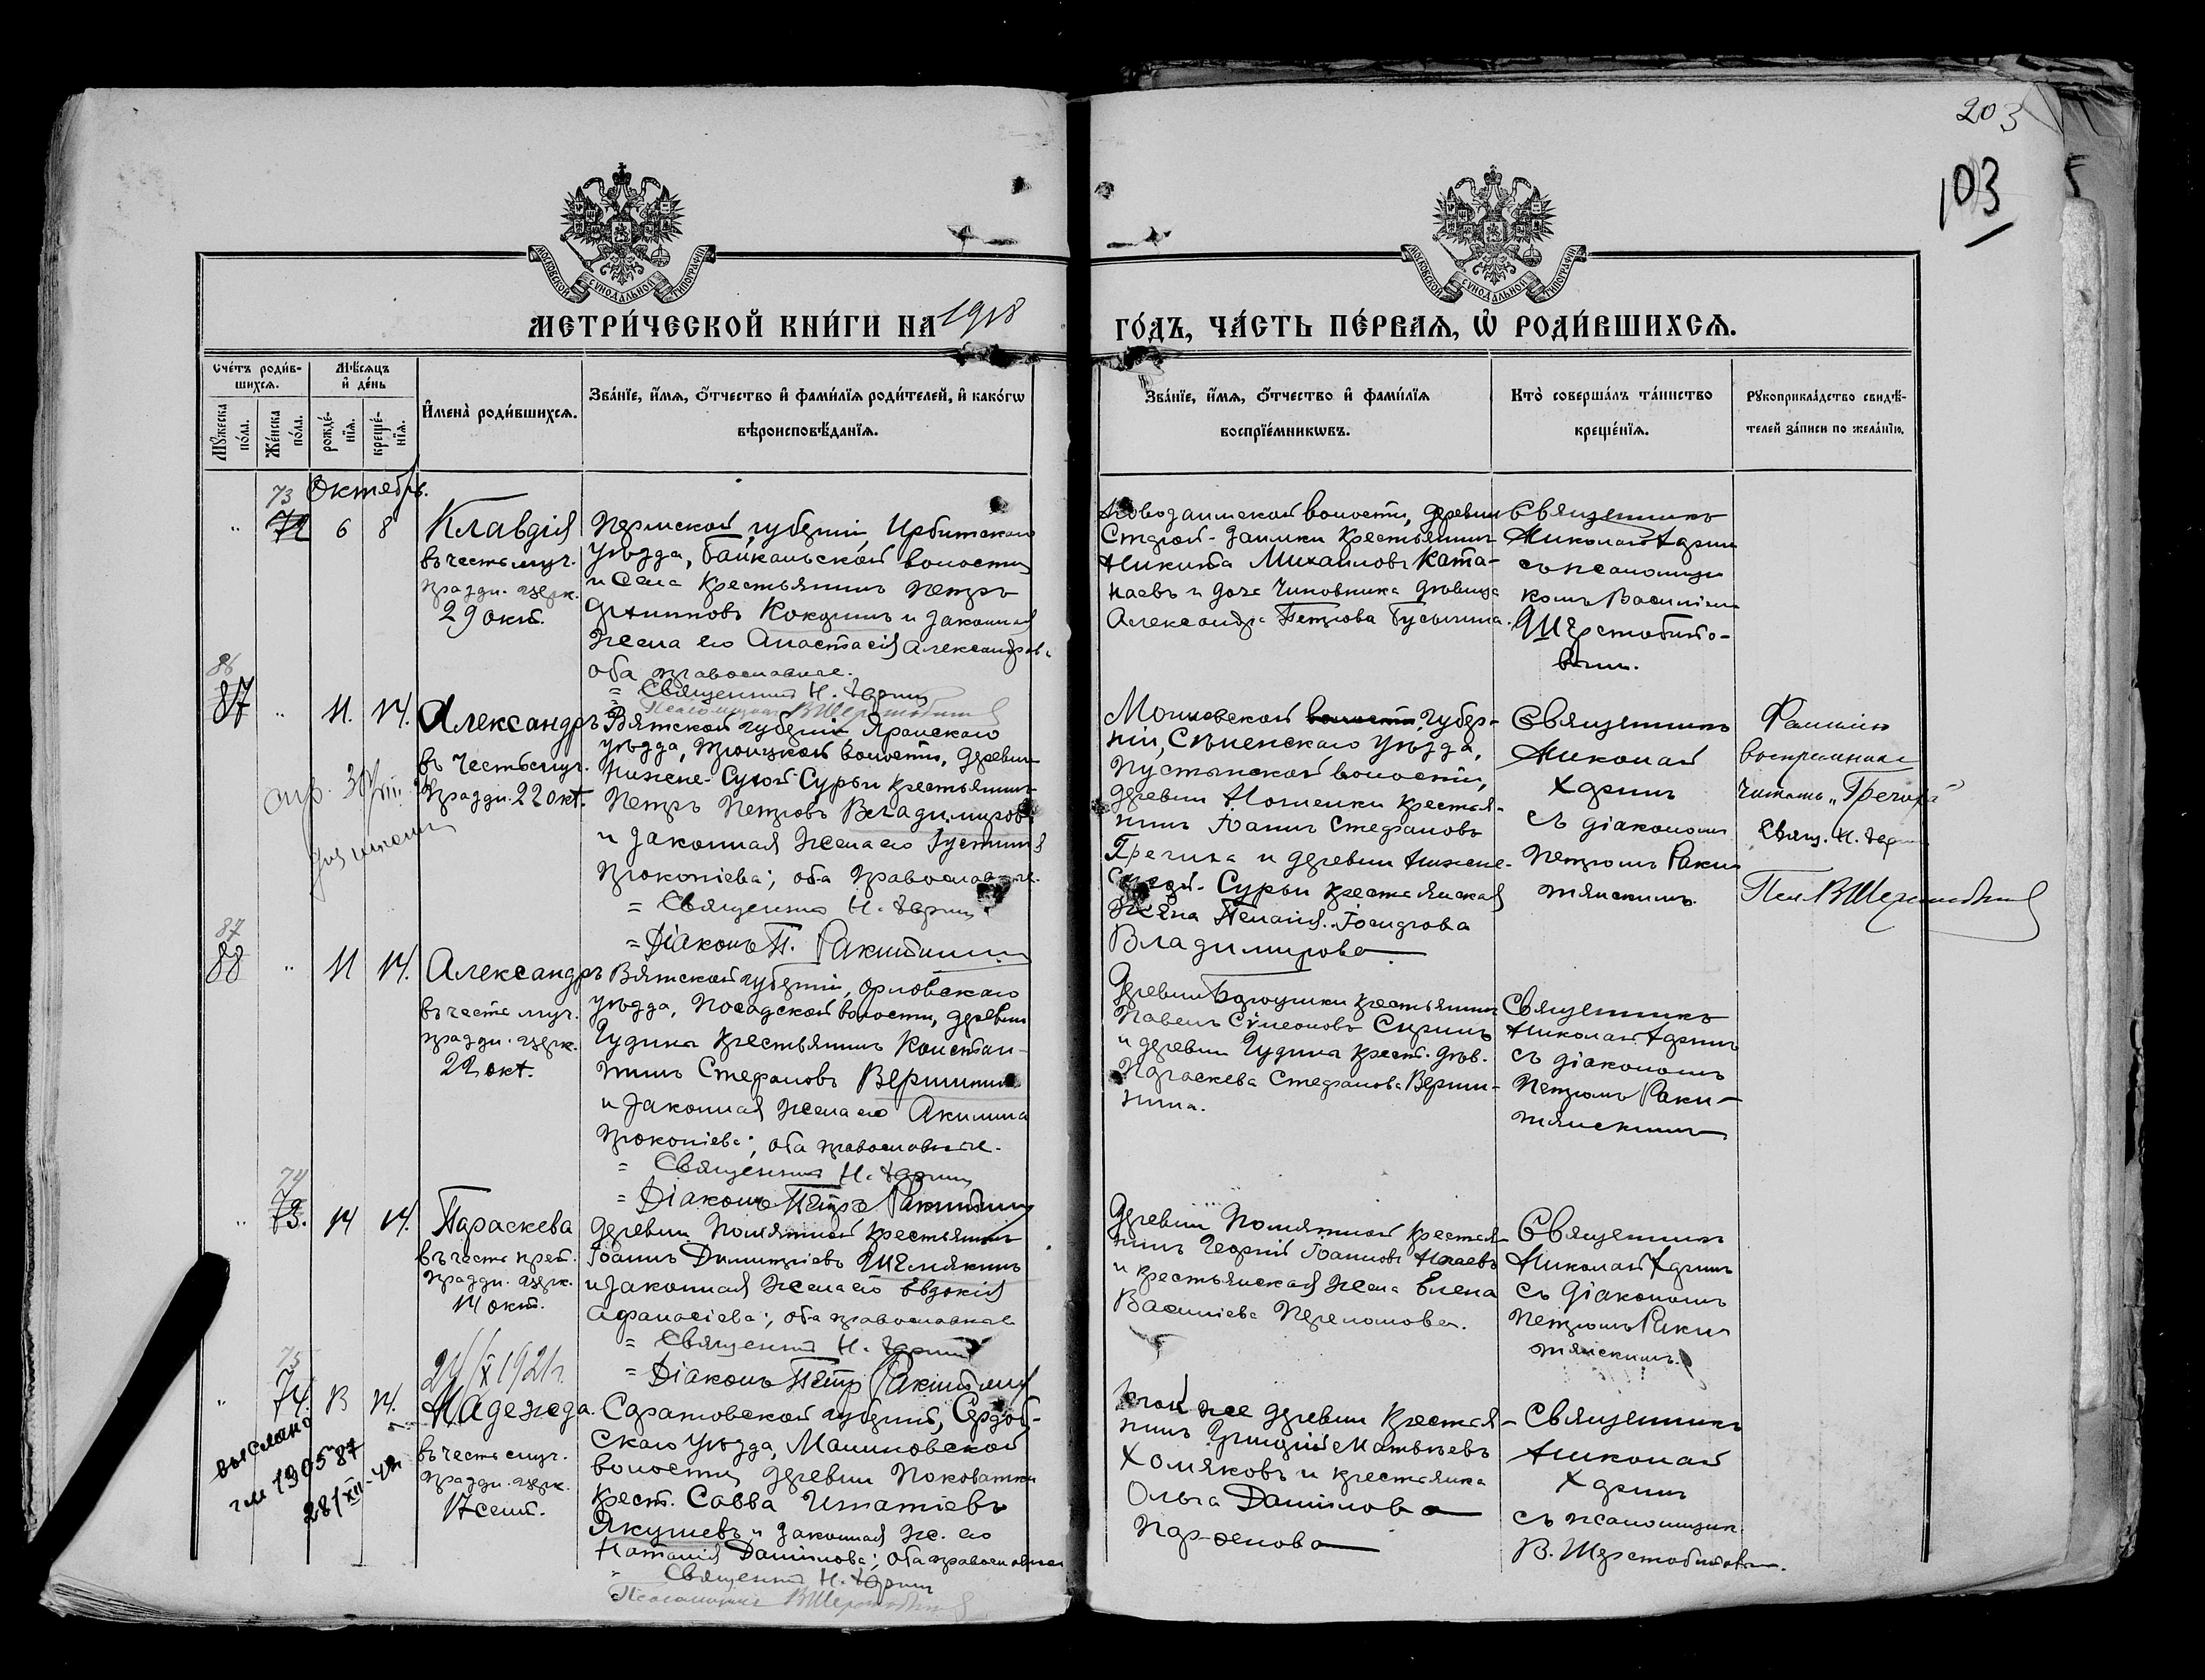 203
103
МОСКОВСКОЙ СѴНОДАЛЬНОЙ ТИПОГРАФІИ
МОСКОВСКОЙ СѴНОДАЛЬНОЙ ТИПОГРАФІИ
МЕТРИ́ЧЕСКОЙ КНИ́ГИ НА 1918
ГО́ДЪ, ЧА́СТЬ ПЕ́РВАѦ, Ѡ҆ РОДИ́ВШИХСѦ.
Сче́тъ роди́в-
шихсѧ.
Мꙋ́жеска
по́ла.
Же́нска
по́ла.
Мѣ́сѧцъ
и҆ де́нь
рожде́-
нїѧ.
креще́-
нїѧ.
И҆мена̀ роди́вшихсѧ.
Зва́нїе, и҆́мѧ, ѻ҆́тчество и҆ фами́лїѧ роди́телей, и҆ како́гѡ
вѣроисповѣ́данїѧ.
Зва́нїе, и҆́мѧ, ѻ҆́тчество и҆ фами́лїѧ
воспрїе́мникѡвъ.
Кто̀ соверша́лъ та́инство
креще́нїѧ.
Рꙋкоприкла́дство свидѣ́-
телей за́писи по жела́нїю.
Октябрь.
73
72 6 8
Клавдія
въ честь муч.
праздн. церк.
29 окт.
Пермской губерніи, Ирбитскаго
уѣзда, Байкальской волости
и села крестьянинъ Петръ
Кокшинъ и законная
жена его Анастасія Александрова
оба православные.
= Священникъ Н.
Псаломщикъ В Шерстобитовъ
Новозаимской волости, деревни
Старой-Заимки крестьянинъ
Никита Михаиловъ Ката-
наевъ и дочь чиновника дѣвица
Александра Петрова
Священникъ
Николай
съ псаломщи-
комъ Василіемъ
Шерстобито-
вымъ.
86
87 11. 14.
Александръ
въ честь муч.
праздн. 22 окт.
Вятской губерніи Яранскаго
уѣзда, Троицкой волости, деревни
Нижне-Сухой-Суръи крестьянинъ
Петръ Петровъ Владимировъ
и законная жена его Іустинія
Прокопіева; оба православные.
= Священникъ Н.
= Діаконъ П. Ракитянскій
Могилевской волости губер-
ніи, Сѣненскаго уѣзда,
Пустынской волости,
деревни крестья-
нинъ Іоаннъ Стефановъ
Гречиха и деревни Нижне-
Сухой-Суръи крестьянская
жена Пелагія
Владимирова
Священникъ
Николай
съ діакономъ
Петромъ Раки-
тянскимъ.
Фамилію
воспріемника
читать „Гречиха"
Свящ. Н.
Пс. В Шерстобитовъ
87
88 11 14.
Александръ
въ честь муч.
праздн. церк.
22 окт.
Вятской губерніи, Орловскаго
уѣзда, Посадской волости, деревни
Чудина крестьянинъ Констан-
тинъ Стефановъ Вершининъ
и законная жена его Акилина
Прокопіева; оба православные.
= Священникъ Н.
= Діаконъ Петръ Ракитянскій
Деревни крестьянинъ
Павелъ Сѵмеоновъ
и деревни Чудина крест. дѣв.
Параскева Стефанова Верши-
нина.
Священникъ
Николай
съ діакономъ
Петромъ Раки-
тянскимъ
74
73. 14 14.
Параскева
въ честь преп.
праздн. церк.
14 окт.
Деревни крестьянинъ
Іоаннъ Димитріевъ Шемякинъ
и законная жена его Евдокія
Афанасіева; оба православные
= Священникъ Н.
= Діаконъ Петръ Ракитянскій
Деревни крестья-
нинъ Георгій Іоанновъ
и крестьянская жена Елена
Василіева
Священникъ
Николай
съ діакономъ
Петромъ Раки-
тянскимъ.
24/X 1921 г.
75
74. 13 14.
Надежда.
въ честь муч.
праздн. церк.
17 сент.
выслано
130587
28/XII-
Саратовской губерніи, Сердоб-
скаго уѣзда, Малиновской
волости, деревни
крест. Савва Игнатіевъ
Якушевъ и законная ж. его
Наталія Даніилова; оба православные
= Священникъ Н.
Псаломщикъ В Шерстобитовъ
той же деревни крестья-
нинъ Матвѣевъ
Хомяковъ и крестьянка
Ольга Даніилова
Священникъ
Николай
съ псаломщик.
В. Шерстобитовымъ.